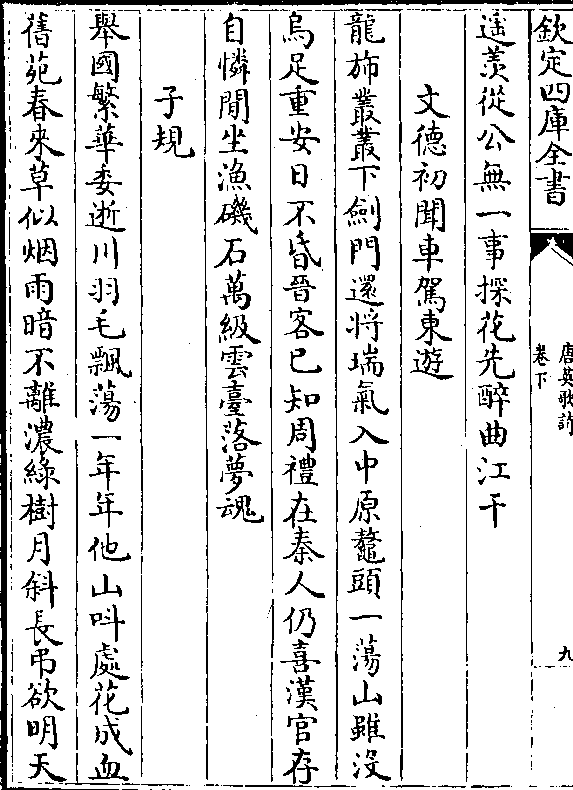 欽定四庫全書
唐英歌詩
卷下
九
遥羨從公無一事探花先醉曲江干
文德初聞車駕東遊
龍斾叢叢下劒門還將瑞氣入中原鼇頭一蕩山雖没
烏足重安日不昏晉客已知周禮在秦人仍喜漢官存
自憐閒坐漁磯石萬級雲臺落夢魂
子規
舉國繁華委逝川羽毛飄蕩一年年他山呌處花成血
舊苑春來草似烟雨暗不離濃綠樹月斜長弔欲明天